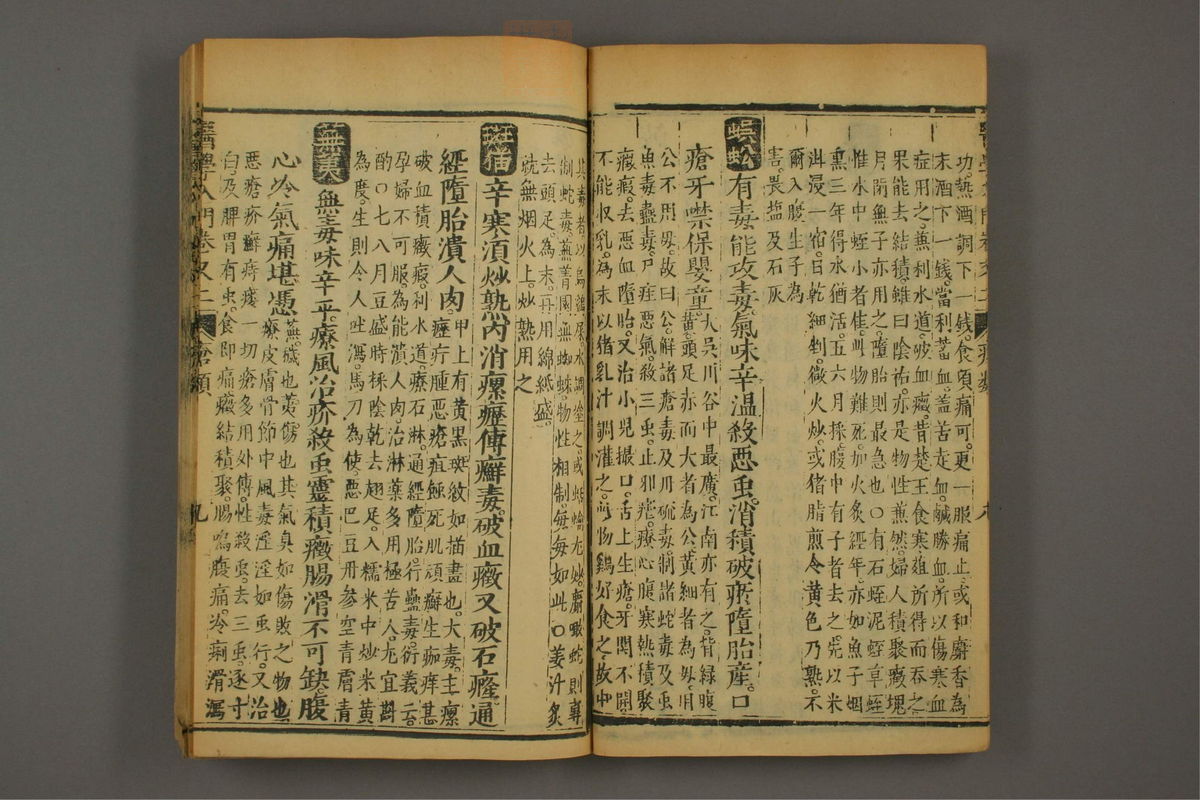 功熱酒調下一錢食頃痛可更一服痛止或和麝香為
末酒下一錢當利畜血蓋苦走血鹹勝血所以傷寒血
症用之無利水道破血癥昔楚王食寒葅所得而吞之
果能去結積雖曰陰祐亦是物性兼然婦人積聚癥塊
月閉無子亦用之墮胎則最急也○有石蛭泥蛭草蛭
惟水中蛭小者佳此物難死加火炙經年亦如魚子烟
熏三年得水猶活五六月採腹中有子者去之先以米
泔浸一宿日乾細剉微火炒或猪脂煎令黄色乃熟不
爾入腹生子為
害畏塩及石灰
蜈蚣有毒能攻毒氣味辛温殺惡虫消積破瘀墮胎產口
瘡牙噤保嬰童大吳川谷中最廣江南亦有之背緑腹
黄頭足赤而大者為公黄細者為母用
公不用母故曰公解諸瘡毒及丹硫毒制諸蛇毒及虫
魚毒蠱毒尸疰惡氣殺三虫止邪瘧療心腹寒熱積聚
癥瘕去惡血墮胎又治小兒撮口舌上生瘡牙関不開
不能収乳為末以猪乳汁調灌之此物鷄好食之故中
其毒者以烏鷄屎水調塗之或蛞蝓尤妙麝啖蛇則專
制蛇毒蕪菁園無蜘蛛物性相制每每如此○姜汁炙
去頭足為末再用綿紙盛
就無烟火上炒熟用之
斑猫辛寒須炒熟内消瘰癧傳癬毒破血癥又破石癃通
經墮胎潰人肉甲上有黄黑斑紋如描畫也大毒主瘰
癧疔腫惡瘡疽蝕死肌頑癬生痂痒甚
破血積癥瘕利水道療石淋通經墮胎行蠱毒衍義云
孕婦不可服為能潰人肉治淋藥多用極苦人尤宜斟
酌○七八月豆盛時採陰乾去翅足入糯米中炒米黄
為度生則令人吐瀉馬刀為使惡巴豆丹參空青膚青
蕪荑無毒味辛平療風治疥殺虫靈積癥腸滑不可缺腹
心冷氣痛堪憑蕪穢也荑傷也其氣臭如傷敗之物也
療皮膚骨節中風毒淫淫如虫行又治
惡瘡疥癬痔瘻一切瘡多用外傳性殺虫去三虫逐寸
白及脾胃有虫食即痛癥結積聚腸鳴腹痛冷痢滑瀉
醫學入門卷又二
瘡類
九